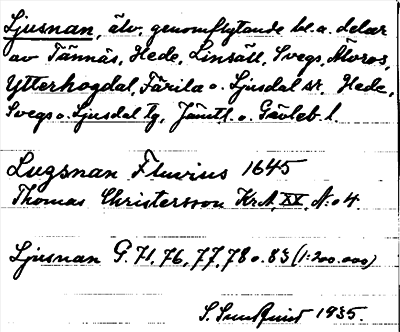 Ljusnan, älv, genomflytande bl. a. delar
av Tännäs, Hede, Linsäll, Svegs, Älvros,
Ytterhogdal, Färila o. Ljusdal sn. Hede,
Svegs o. Ljusdal tg, Jämtl. o. Gävleb. l.
Lugsnan Fluvius 1645
Thomas Christersson Kr.A. XX, N:o 4.
Ljusnan G. 71, 76, 77, 78 o. 83 (1:200.000)
S. Sundquist 1935.